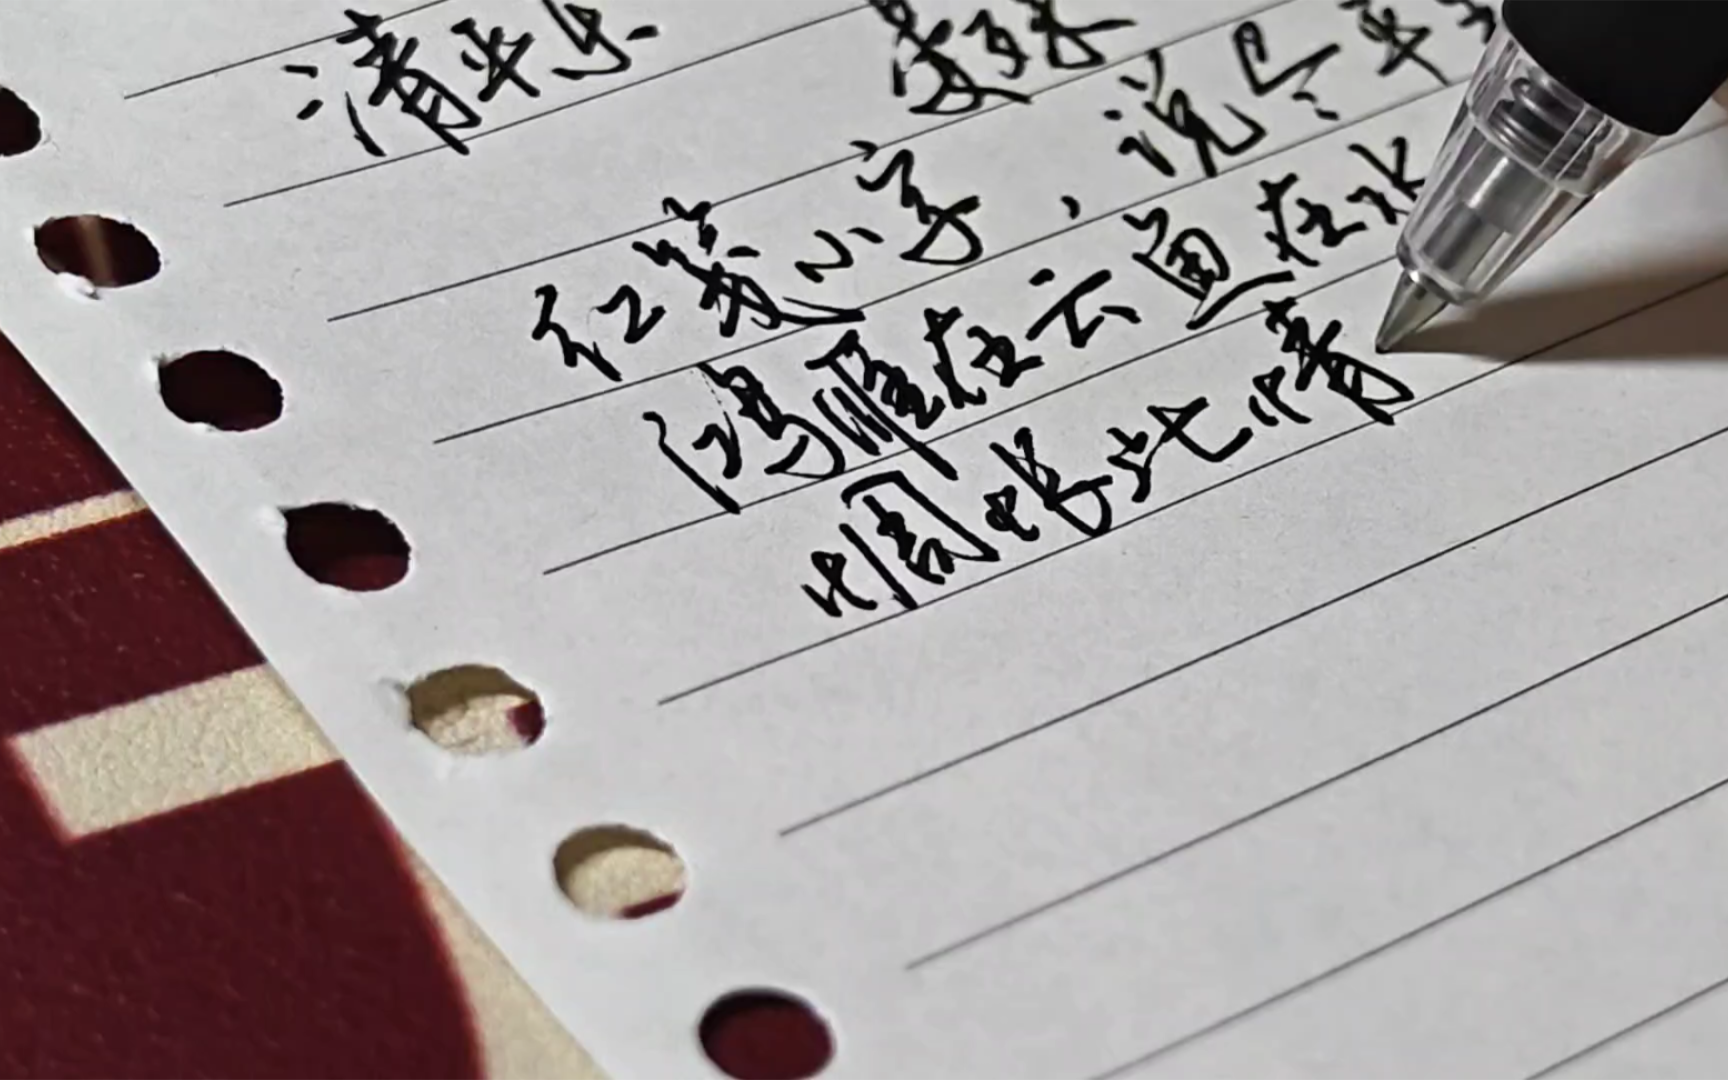 清平乐 晏殊
红笺小字，说尽平生
鸿雁在云鱼在水
惆怅此情